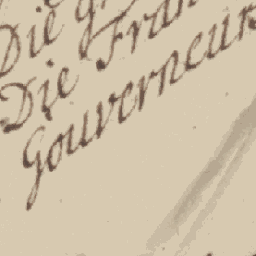 Die
Die Fran
Gouverneur